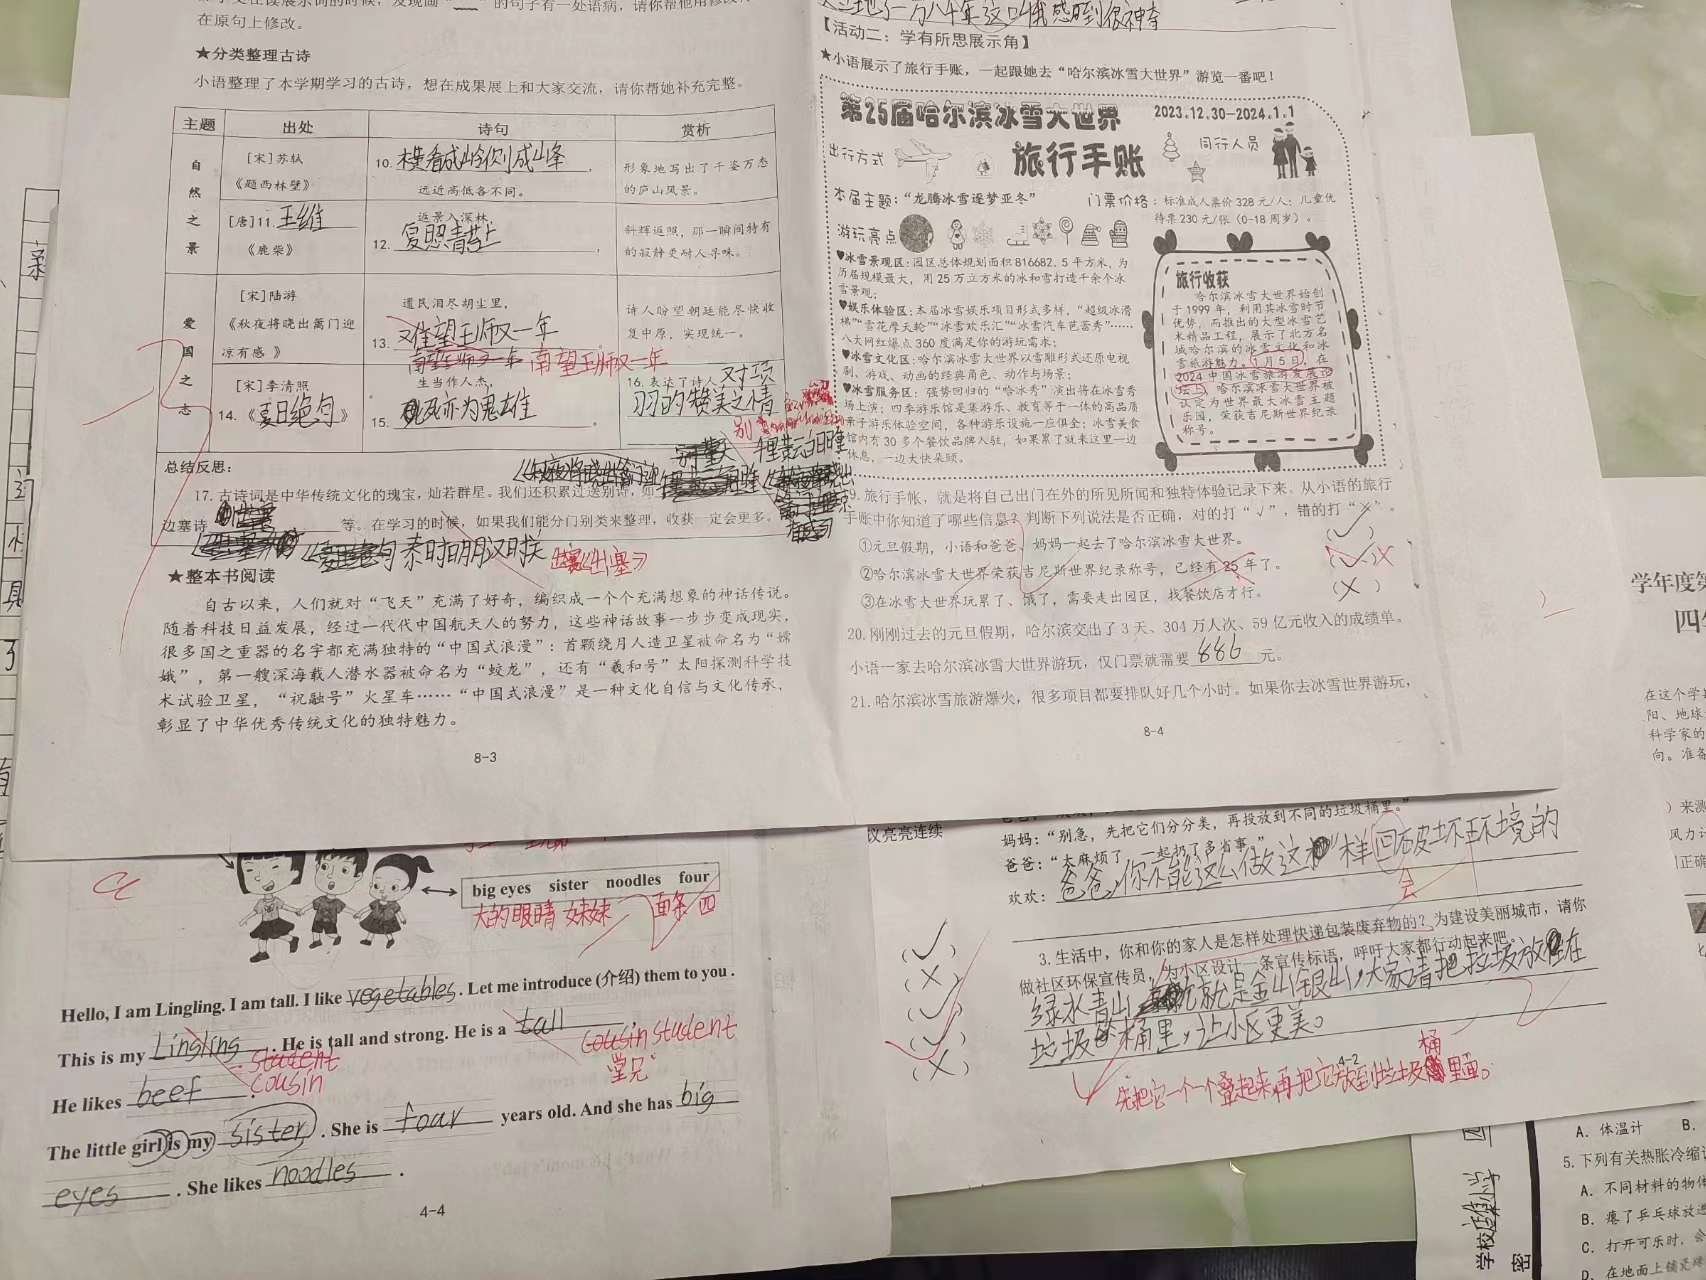 在原句上修改。
★分类整理古诗
小语整理了本学期学习的古诗，想在成果展上和大家交流，请你帮她补充完整。
主题 出处 诗句 赏析
自然之景
[宋]苏轼
《题西林壁》
10. 横看成岭侧成峰，
远近高低各不同。
形象地写出了千姿万态
的庐山风景。
[唐]11. 王维
《鹿柴》
返景入深林，
12. 复照青苔上
斜辉返照，那一瞬间特有
的寂静更耐人寻味。
爱国之志
[宋]陆游
《秋夜将晓出篱门迎
凉有感 》
遗民泪尽胡尘里，
13. 又准望王师又一年
南望王师又一年
诗人盼望朝廷能尽快收
复中原，实现统一。
[宋]李清照
14.《夏日绝句》
生当作人杰，
15. 死亦为鬼雄
16. 表达了诗人对项
羽的赞美之情
总结反思：
17. 古诗词是中华传统文化的瑰宝，灿若群星。我们还积累过送别诗，如
别董大 千里黄云白日曛
边塞诗 等。在学习的时候，如果我们能分门别类来整理，收获一定会更多。
秦时明月汉时关
《出塞》
★整本书阅读
自古以来，人们就对“飞天”充满了好奇，编织成一个个充满想象的神话传说。
随着科技日益发展，经过一代代中国航天人的努力，这些神话故事一步步变成现实，
很多国之重器的名字都充满独特的“中国式浪漫”：首颗绕月人造卫星被命名为“嫦
娥”，第一艘深海载人潜水器被命名为“蛟龙”，还有“羲和号”太阳探测科学技
术试验卫星，“祝融号”火星车……“中国式浪漫”是一种文化自信与文化传承，
彰显了中华优秀传统文化的独特魅力。
8-3
这叫我感到很神奇
【活动二：学有所思展示角】
★小语展示了旅行手账，一起跟她去“哈尔滨冰雪大世界”游览一番吧！
第25届哈尔滨冰雪大世界 2023.12.30-2024.1.1
出行方式 旅行手账 同行人员
本届主题：“龙腾冰雪逐梦亚冬” 门票价格：标准成人票价328元/人；儿童优
待票230元/张（0-18周岁）。
游玩亮点
♥冰雪景观区：园区总体规划面积816682.5平方米，为
历届规模最大，用25万立方米的冰和雪打造千余个冰
雪景观；
♥娱乐体验区：本届冰雪娱乐项目形式多样，“超级冰滑
梯”“雪花摩天轮”“冰雪欢乐汇”“冰雪汽车芭蕾秀”……
八大网红爆点360度满足你的游玩需求；
♥冰雪文化区：哈尔滨冰雪大世界以雪雕形式还原电视
剧、游戏、动画的经典角色、动作与场景；
♥冰雪服务区：强势回归的“哈冰秀”演出将在冰雪秀
场上演；四季游乐馆是集游乐、教育等于一体的高品质
亲子游乐体验空间，各种游乐设施一应俱全；冰雪美食
馆内有30多个餐饮品牌入驻，如果累了就来这里一边
休息，一边大快朵颐。
旅行收获
哈尔滨冰雪大世界始创
于1999年，利用其冰雪时节
优势，而推出的大型冰雪艺
术精品工程，展示了北方名
城哈尔滨的冰雪文化和冰
雪旅游魅力。1月5日，在
2024中国冰雪旅游发展论
坛上，哈尔滨冰雪大世界被
认定为世界最大冰雪主题
乐园，荣获吉尼斯世界纪录
称号。
9. 旅行手帐，就是将自己出门在外的所见所闻和独特体验记录下来。从小语的旅行
手账中你知道了哪些信息？判断下列说法是否正确，对的打“√”，错的打“×”。
①元旦假期，小语和爸爸、妈妈一起去了哈尔滨冰雪大世界。 （√）
②哈尔滨冰雪大世界荣获吉尼斯世界纪录称号，已经有25年了。
③在冰雪大世界玩累了、饿了，需要走出园区，找餐饮店才行。 （×）
20. 刚刚过去的元旦假期，哈尔滨交出了3天、304万人次、59亿元收入的成绩单。
小语一家去哈尔滨冰雪大世界游玩，仅门票就需要 886 元。
21. 哈尔滨冰雪旅游爆火，很多项目都要排队好几个小时。如果你去冰雪世界游玩，
8-4
big eyes sister noodles four
大的眼睛 妹妹 面条 四
Hello, I am Lingling. I am tall. I like vegetables. Let me introduce (介绍) them to you.
This is my Lingling. He is tall and strong. He is a tall
student cousin student
cousin 堂兄
He likes beef.
The little girl is my sister. She is four years old. And she has big
eyes. She likes noodles.
4-4
议亮亮连续
妈妈：“别急，先把它们分分类，再投放到不同的垃圾桶里。”
爸爸：“太麻烦了，一起扔了多省事”
欢欢：爸爸，你不能这么做这样回破坏环境的
会
3. 生活中，你和你的家人是怎样处理快递包装废弃物的？为建设美丽城市，请你
做社区环保宣传员，为小区设计一条宣传标语，呼吁大家都行动起来吧。
绿水青山就是金山银山，大家请把垃圾放在
垃圾桶里，让小区更美。
4-2
先把它一个一个叠起来再把它放到垃圾桶里面。
（√）
（×）
（√）
（√）
（×）
学年度第
在这个学
阳、地球
科学家的
向。准备
）来测
A. 体温计 B.
5. 下列有关热胀冷缩
A. 不同材料的物体
B. 瘪了乒乓球放进
C. 打开可乐时，会
D. 在地面上铺瓷
学校
密